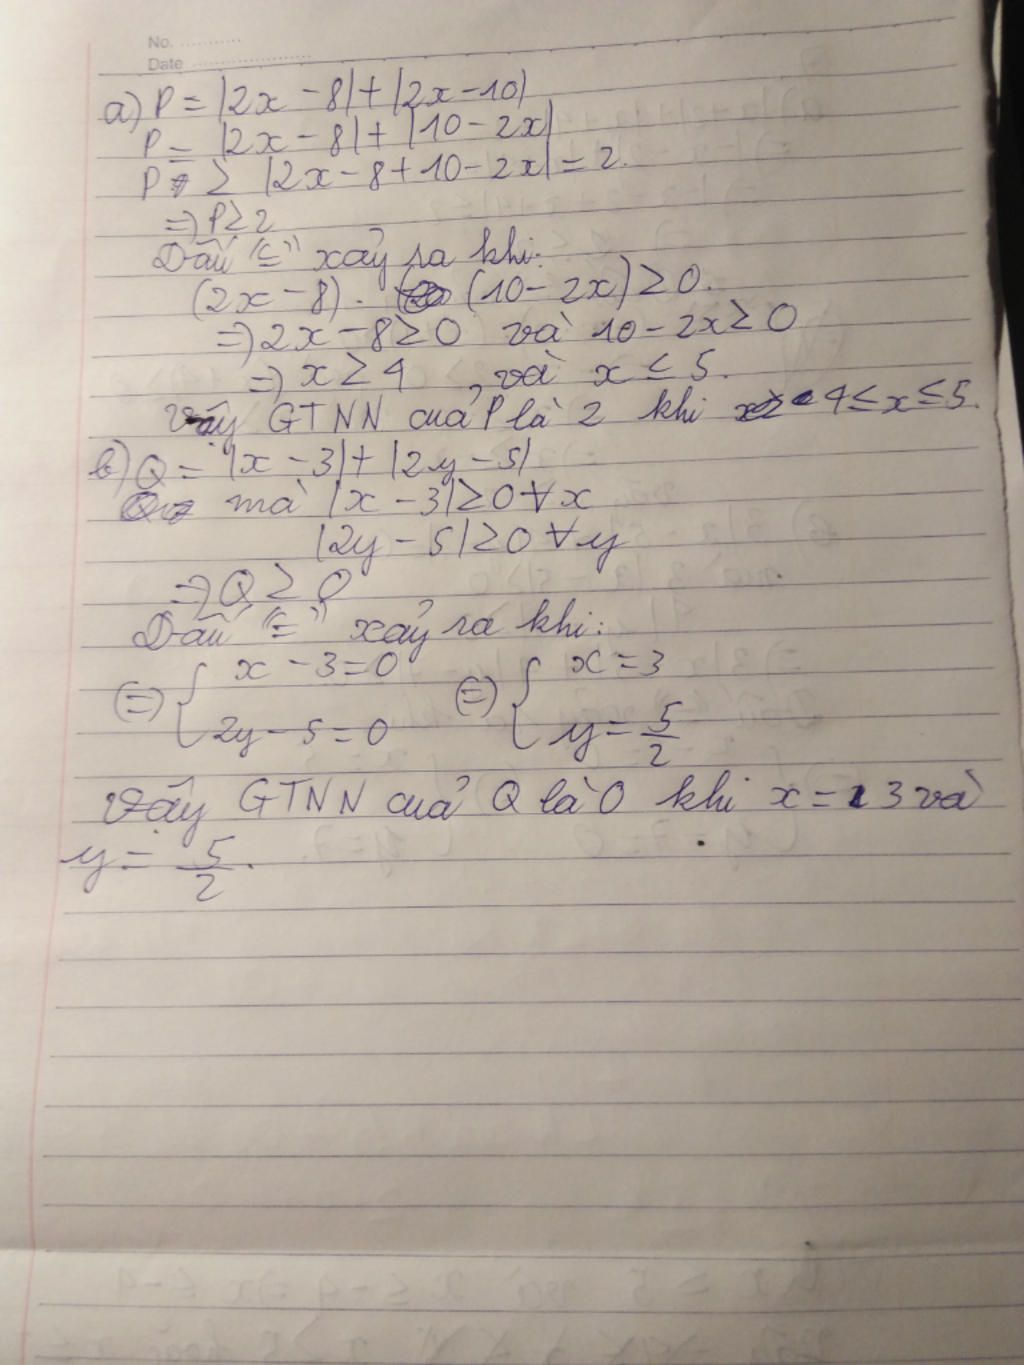 No. ...........
Date .....................
a) P = |2x - 8| + |2x - 10|
P = |2x - 8| + |10 - 2x|
P ≥ |2x - 8 + 10 - 2x| = 2.
=> P ≥ 2
Dấu "=" xảy ra khi:
(2x - 8) . (10 - 2x) ≥ 0.
=> 2x - 8 ≥ 0 và 10 - 2x ≥ 0
=> x ≥ 4 , và x ≤ 5.
Vậy GTNN của P là 2 khi 4 ≤ x ≤ 5.
b) Q = |x - 3| + |2y - 5|
mà |x - 3| ≥ 0 ∀x
|2y - 5| ≥ 0 ∀y
=> Q ≥ 0
Dấu "=" xảy ra khi:
(=) { x - 3 = 0 (=) { x = 3
2y - 5 = 0 y = 5/2
Vậy GTNN của Q là 0 khi x = 3 và
y = 5/2.